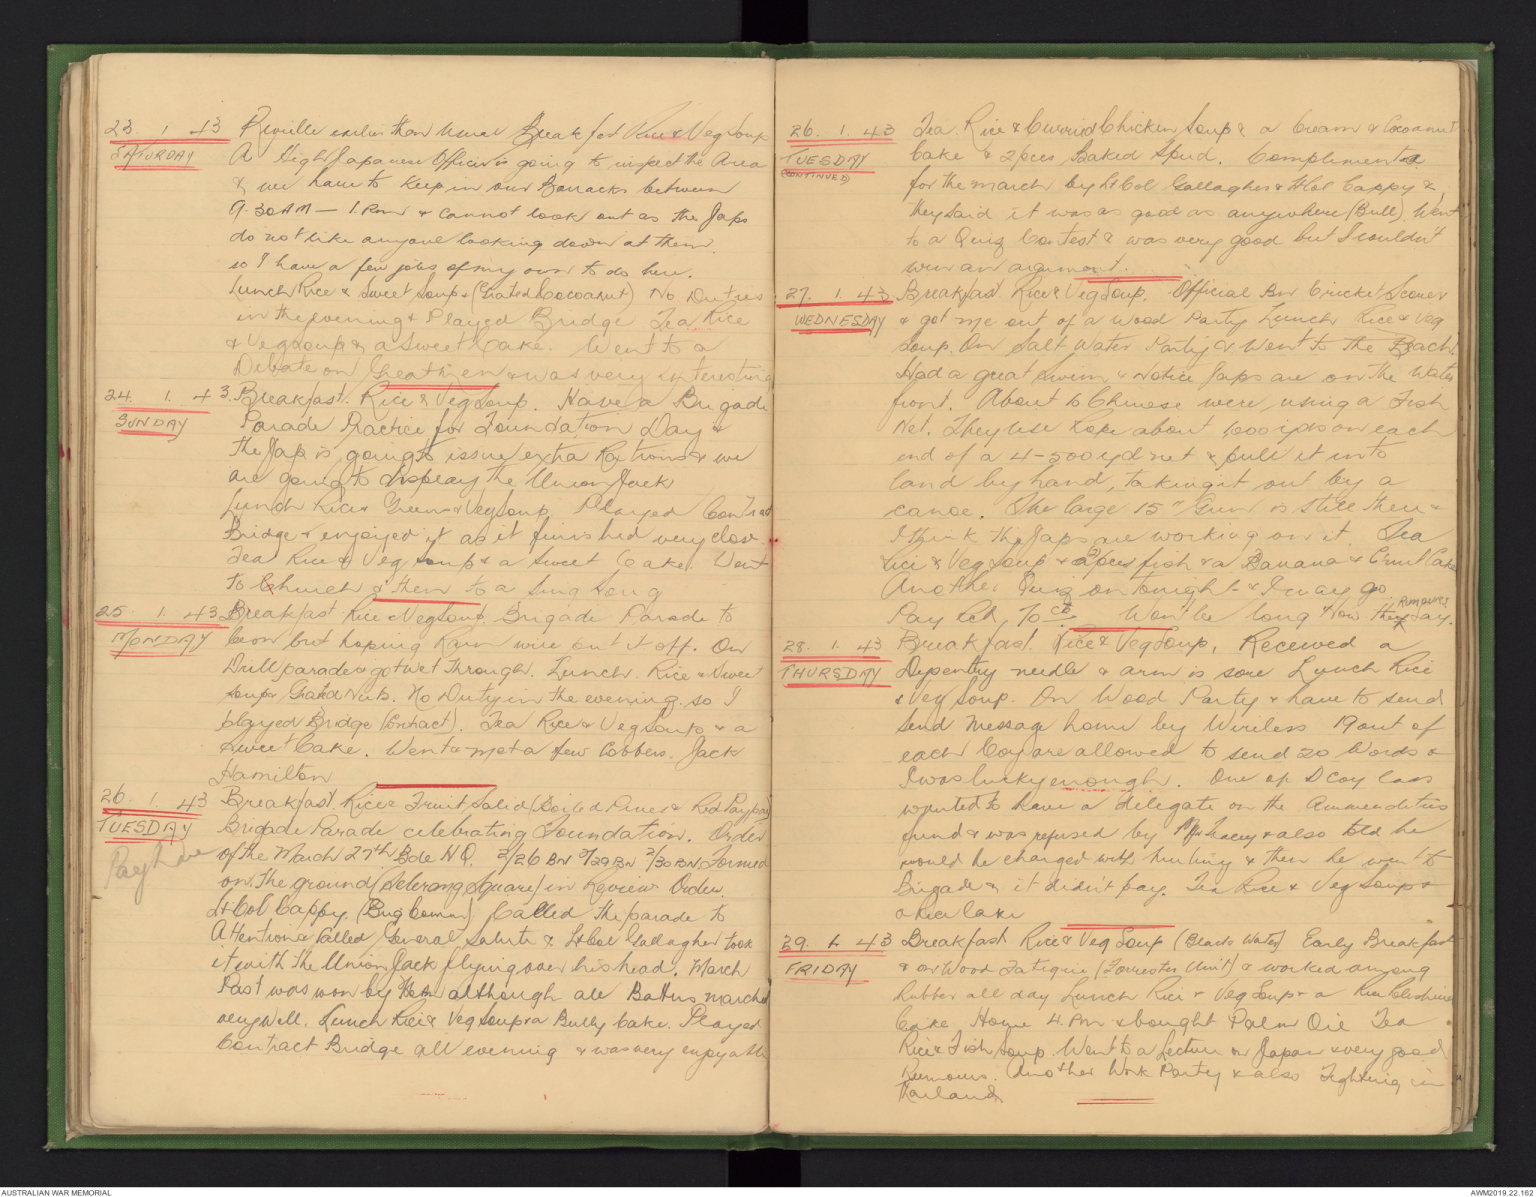 23. 1. 43 Reveille earlier than usual Breakfast Rice & Veg Soup
SATURDAY A High Japanese Officer is going to inspect the Area
& we have to keep in our Barracks between
9.30AM - 1.Pm & cannot look out as the Japs
do not like anyone looking down at them.
so I have a few jobs of my own to do here.
Lunch Rice & Sweet Soup & (Grated Cocoanut) No Duties
in the evening & Played Bridge Tea Rice
& Veg Soup & a Sweet Cake. Went to a
Debate on Heathen & was very interesting
24. 1. 43. Breakfast. Rice & Veg Soup. Have a Brigade
SUNDAY Parade Practice for Foundation Day &
the Jap is going to issue extra Rations & we
are going to display the Union Jack
Lunch Rice & Greens & Veg Soup. Played Contract
Bridge & enjoyed it as it finished very close
Tea Rice & Veg Soup & a Sweet Cake. Went
to Church & then to a Sing Song
25. 1. 43 Breakfast Rice & Veg Soup Brigade Parade to
MONDAY be on but hoping Rain will put it off. On
Drill parade & got wet through. Lunch. Rice & Sweet
Soup & Grated Nuts. No Duty in the evening. so I
played Bridge (Contract). Tea Rice & Veg Soup & a
Sweet Cake. Went & met a few Cobbers. Jack
Hamilton
26. 1. 43 Breakfast. Rice & Fruit Salad (Boiled Pines & Red Paypay)
TUESDAY Brigade Parade celebrating Foundation. Order
of the March 27th Bde HQ. 2/26 BN 2/29 BN 2/30 BN Formed
on the ground (Selerang Square) in Review Order.
Lt Col Cappy. (Brig Comm) Called the parade to
Attention & Called General Salute & Lt Col Gallagher took
it with the Union Jack flying over his head. March
Past was won by although all Battns marched
very well. Lunch Rice & Veg Soup & a Bully Cake. Played
Contract Bridge all evening & was very enjoyable
26. 1. 43 Tea. Rice & Curried Chicken Soup & a Cream & Cocoanut
TUESDAY Cake & 2 pces Baked Spud. Complimented
(CONTINUED) for the march by Lt Col Gallagher & Lt Col Cappy &
they said it was as good as anywhere (Bull). Went
to a Quiz Contest & was very good but I couldn't
win an argument.
27. 1. 43 Breakfast Rice & Veg Soup. Official Bn Cricket Scorer
WEDNESDAY & got me out of a Wood Party Lunch Rice & Veg
Soup. On Salt Water Party & Went to the Beach.
Had a great swim & notice Japs are on the water
front. About 10 Chinese were using a Fish
Net. They use rope about 600 yds on each
end of a 4-500 yd net & pull it into
land by hand, taking it out by a
canoe. The large 15" Gun is still there &
I think the Japs are working on it. Tea
Rice & Veg Soup & 2 pces fish & a Banana & Crust Cake
Another Quiz on tonight & I may go.
Pay 2ch, 70 cts. Won't be long now they say. Rumours
28. 1. 43 Breakfast. Rice & Veg Soup. Received a
THURSDAY Dysentry needle & arm is sore Lunch Rice
& Veg Soup. On Wood Party & have to send
send message home by Wireless 19 out of
each Coy are allowed to send 20 Words &
I was lucky enough. One of D Coy lads
wanted to have a delegate on the Ammendities
fund & was refused by Mjr Tracey & also told he
would be charged with & then he went to
Brigade & it didn't pay. Tea Rice & Veg Soup &
a Rice Cake
29. 1. 43 Breakfast Rice & Veg Soup (Blacks Water) Early Breakfast
FRIDAY & on Wood Fatigue (Forrester Unit) & worked among
Rubber all day Lunch Rice & Veg Soup & a Rice
Cake. Home 4.Pm & bought Palm Oil Tea
Rice & Fish Soup. Went to a Lecture on Japan & very good
Rumours. Another Work Party & also Fighting in
Thailand
Pay
AUSTRALIAN WAR MEMORIAL
AWM2019.22.162